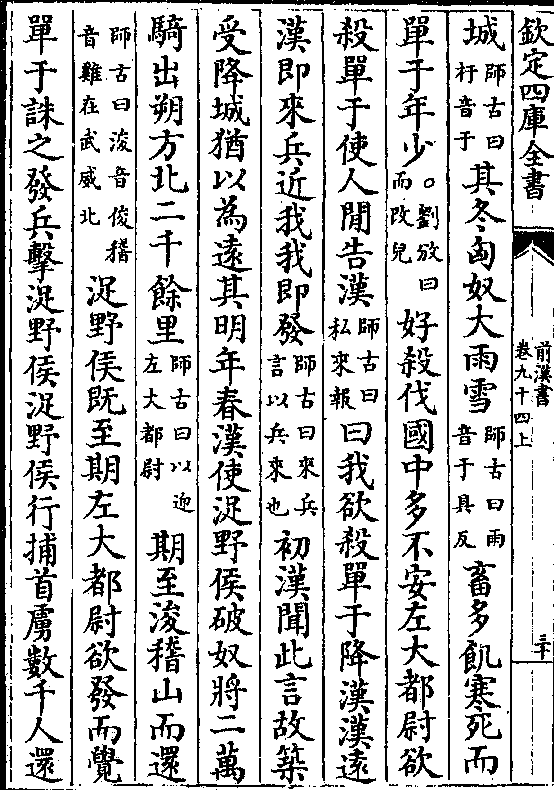 欽定四庫全書
前漢書
卷九十四上
三十
城師古曰杅音于其冬匈奴大雨雪師古曰雨音于具反畜多飢寒死而
單于年少○劉攽曰而改兒好殺伐國中多不安左大都尉欲
殺單于使人閒告漢師古曰私來報曰我欲殺單于降漢漢遠
漢即來兵近我我即發師古曰來兵言以兵來也初漢聞此言故築
受降城猶以為遠其明年春漢使浞野侯破奴將二萬
騎出朔方北二千餘里師古曰以迎左大都尉期至浚稽山而還
師古曰浚音俊稽音雞在武威北浞野侯既至期左大都尉欲發而覺
單于誅之發兵擊浞野侯浞野侯行捕首虜數千人還